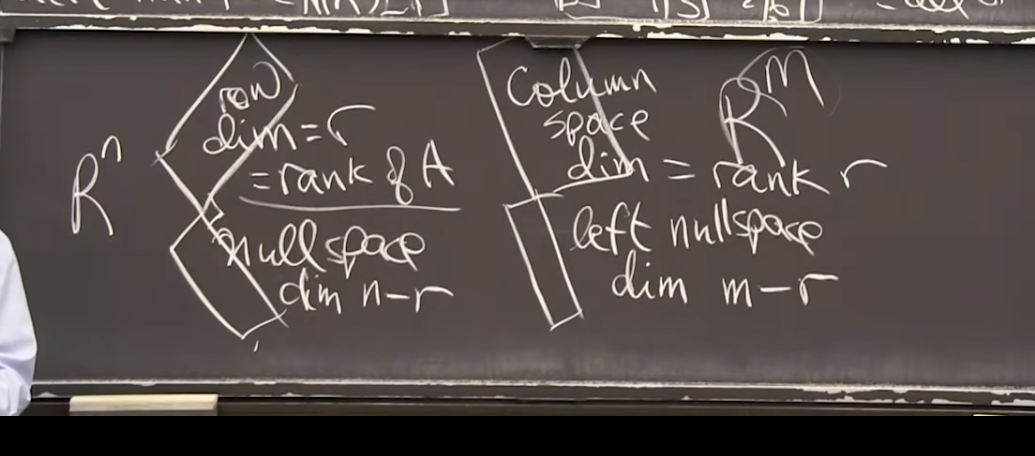 R^n
row
dim = r
= rank of A
nullspace
dim n-r
Column
space
dim = rank r
R^m
left nullspace
dim m-r